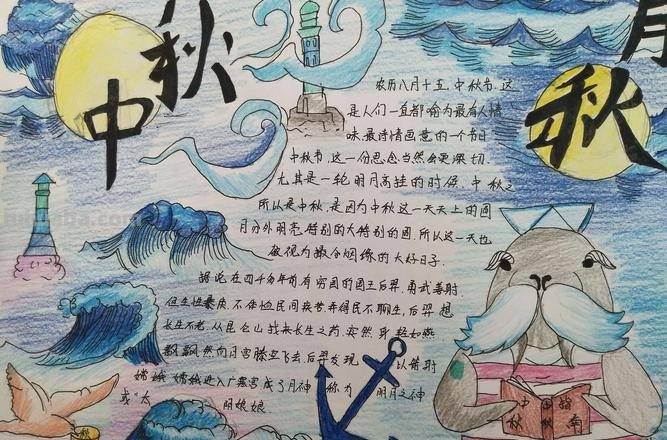 中秋
月
秋
农历八月十五,中秋节,这
是人们一直都喻为最有人情
味,最诗情画意的一个节日
中秋节,这一份思念当然会更深切,
尤其是一轮明月高挂的时候,中秋之
所以是中秋,是因为中秋这一天天上的圆
月分外明亮特别的大特别的圆,所以这一天也
被视为撮合姻缘的大好日子.
据说,在四千多年前有穷国的国王后羿,勇武善射,
但生性暴戾,不体恤民间疾苦弄得民不聊生,后羿想
长生不老,从昆仑山找来长生之药,突然,身轻如燕
飘飘然向月宫腾空飞去后羿发现 以箭射
嫦娥,嫦娥进入广寒宫成了月神 称为 明月之神
或"太 阴娘娘
中秋
中国指南